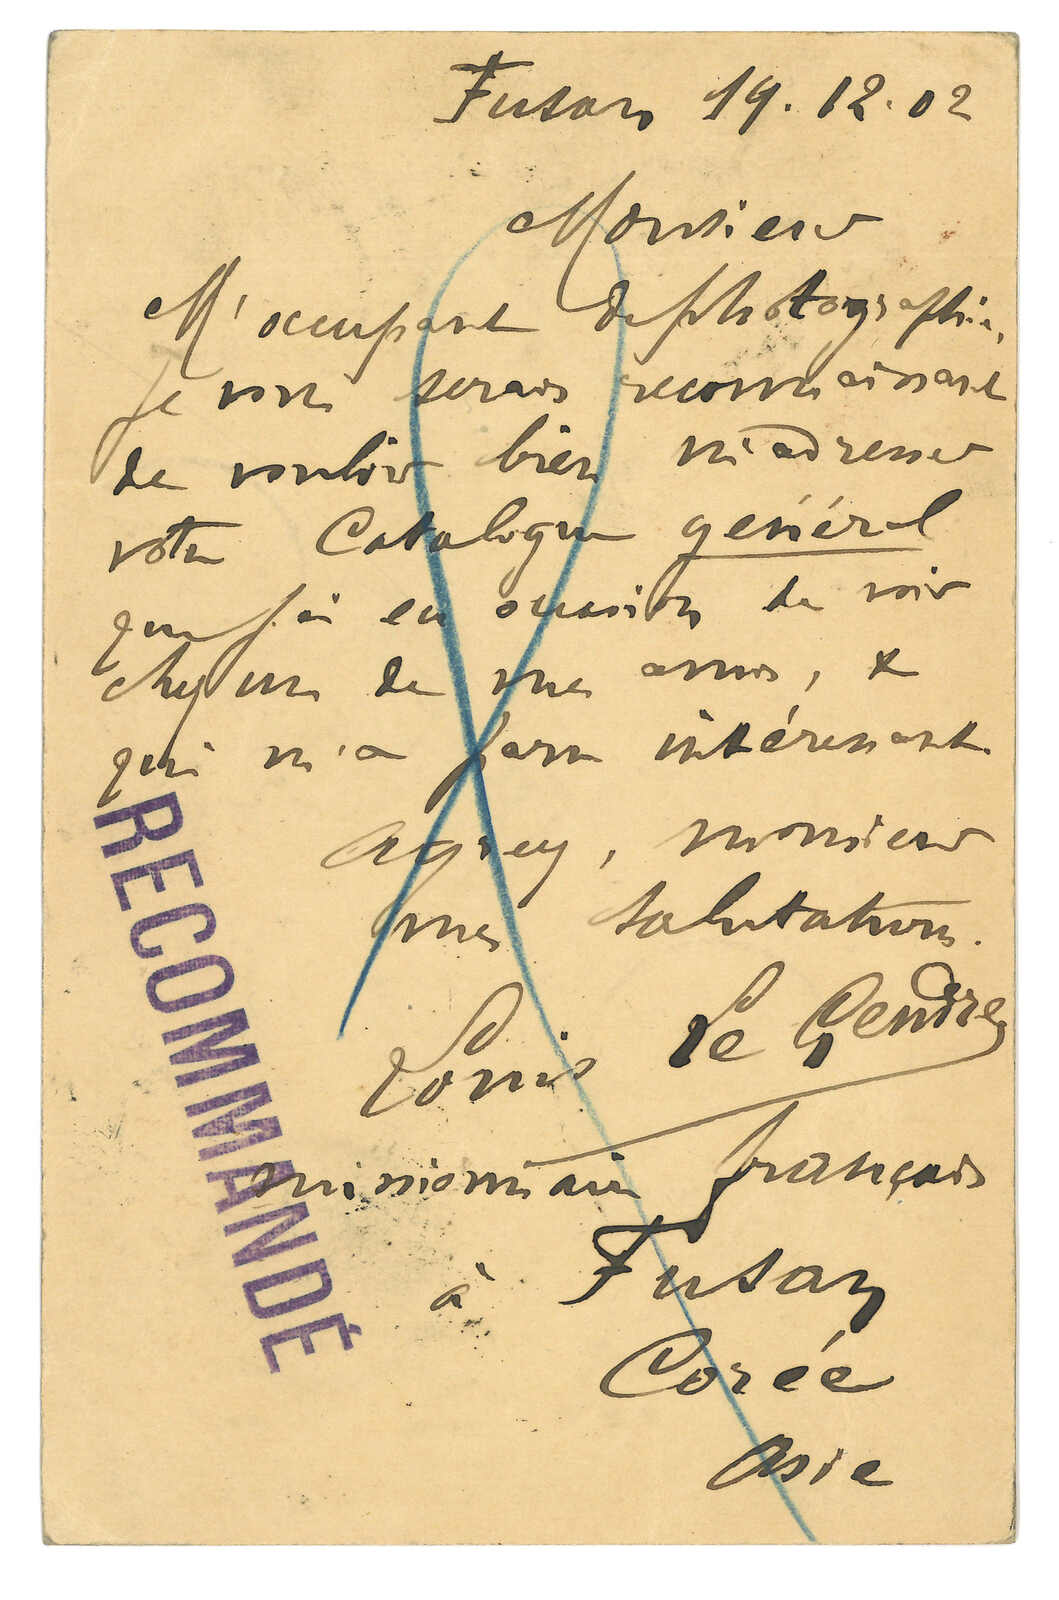 Fusan 19.12.02
Monsieur
M'occupant de photographie,
je vous serais reconnaissant
de vouloir bien m'adresser
votre Catalogue général
que j'ai eu occasion de voir
chez un de mes amis, &
qui m'a paru intéressant.
Agréez, monsieur
mes salutations.
Louis Le Gendre
missionnaire français
à Fusan
Corée
Asie
RECOMMANDÉ